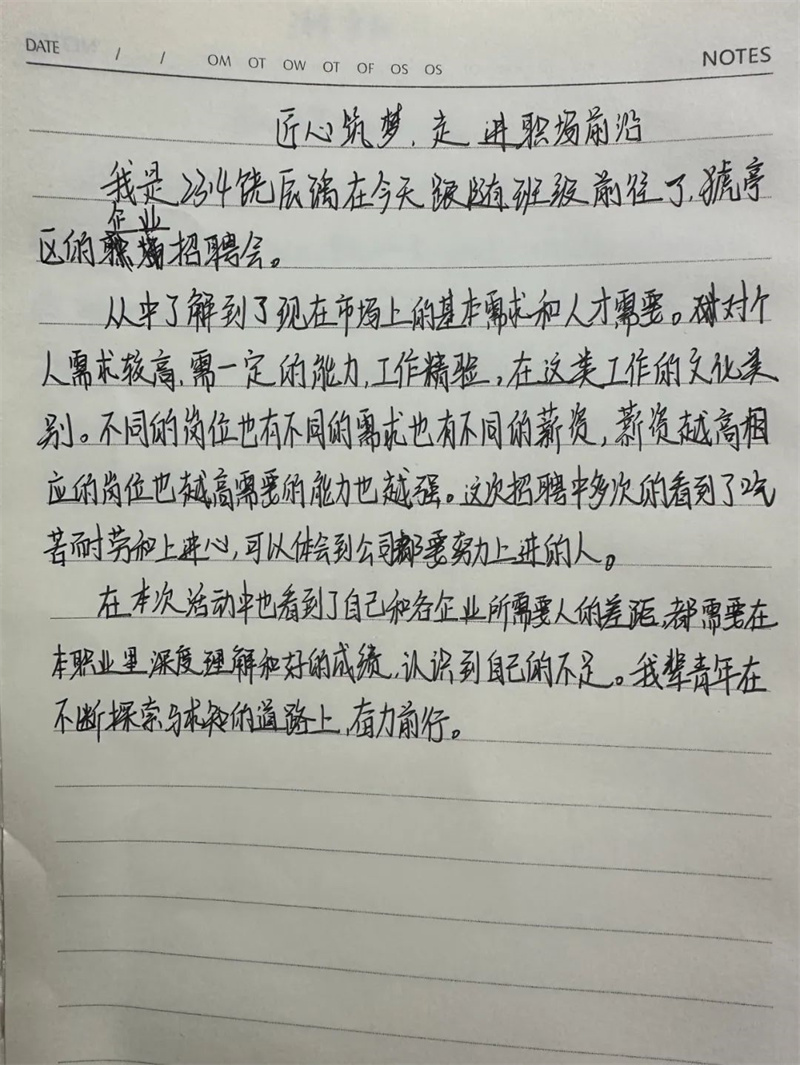 DATE / / OM OT OW OT OF OS OS NOTES
匠心筑梦,走进职场前沿
我是2314饶辰瑞在今天跟随班级前往了,猇亭
企业
区的招聘会。
从中了解到了现在市场上的基本需求和人才需要。对个
人需求较高,需一定的能力,工作精验,在这类工作的文化类
别。不同的岗位也有不同的需求也有不同的薪资,薪资越高相
应的岗位也越高需要的能力也越强。这次招聘中多次的看到了吃
苦而耐劳和上进心,可以体会到公司都要努力上进的人。
在本次活动中也看到了自己和各企业所需要人的差距,都需要在
本职业里深度理解和好的成绩,认识到自己的不足。我辈青年在
不断探索与求知的道路上,奋力前行。